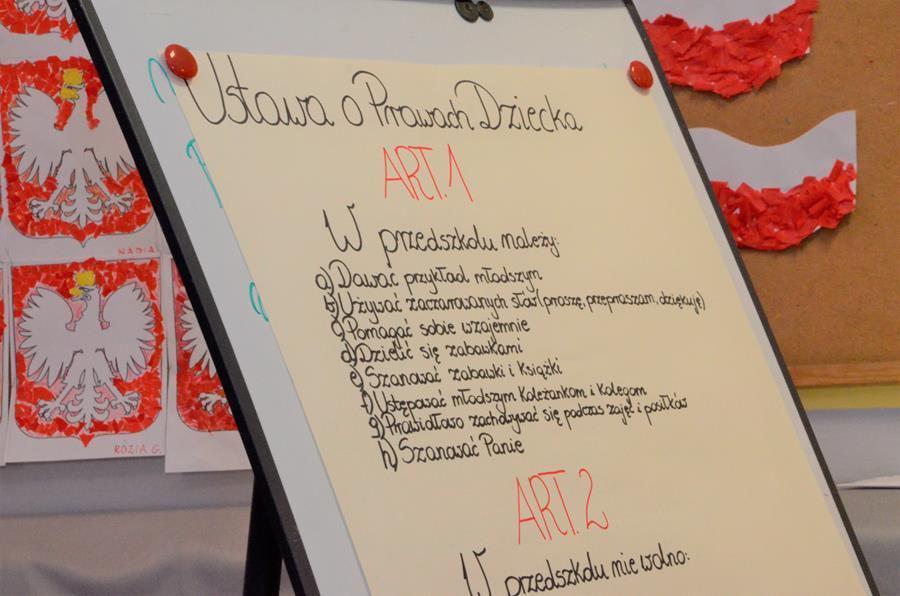 Ustawa o Prawach Dziecka
ART. 1
W przedszkolu należy:
a) Dawać przykład młodszym
b) Używać zaczarowanych słów (proszę, przepraszam, dziękuję)
c) Pomagać sobie wzajemnie
d) Dzielić się zabawkami
e) Szanować zabawki i książki
f) Ustępować młodszym koleżankom i kolegom
g) Prawidłowo zachowywać się podczas zajęć i posiłków
h) Szanować Panie
ART. 2
W przedszkolu nie wolno:
NADIA
RÓZIA G.